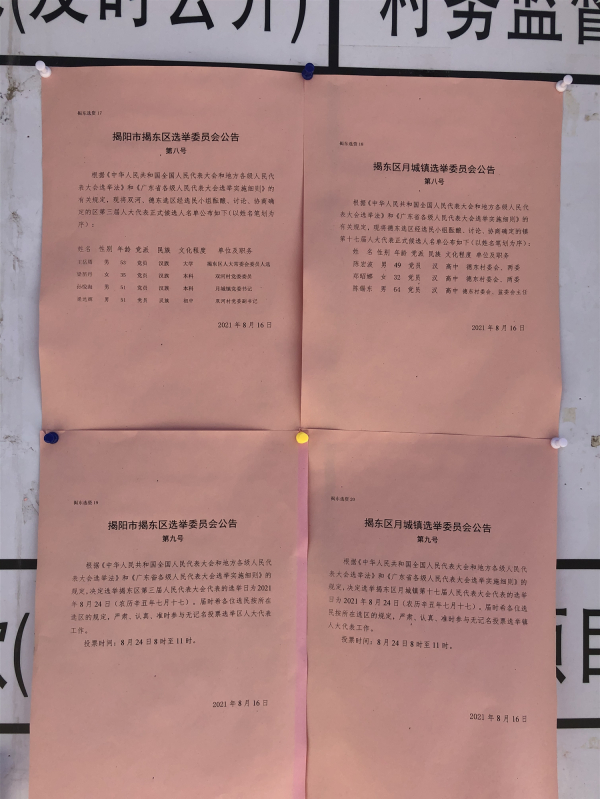 (及时公开)
村务监督
揭东选资 17
揭阳市揭东区选举委员会公告
第八号
根据《中华人民共和国全国人民代表大会和地方各级人民代
表大会选举法》和《广东省各级人民代表大会选举实施细则》的
有关规定，现将双河、德东选区经选民小组酝酿、讨论、协商确
定的区第三届人大代表正式候选人名单公布如下（以姓名笔划为
序）：
姓名 性别 年龄 党派 民族 文化程度 单位及职务
男 53 党员 汉族 大学
女 35 党员 汉族 本科 双河村党委委员
男 51 党员 汉族 本科 月城镇党委书记
男 51 党员 汉族 初中 双河村党委副书记
2021 年 8 月 16 日
揭东选资 18
揭东区月城镇选举委员会公告
第八号
根据《中华人民共和国全国人民代表大会和地方各级人民代
表大会选举法》和《广东省各级人民代表大会选举实施细则》的
有关规定，现将德东选区经选民小组酝酿、讨论、协商确定的镇
第十七届人大代表正式候选人名单公布如下（以姓名笔划为序）：
姓 名 性别 年龄 党派 民族 文化程度 单位及职务
陈宏波 男 49 党员 汉 高中 德东村委会、两委
郑昭娜 女 32 党员 汉 高中 德东村委会、两委
陈锡东 男 64 党员 汉 高中 德东村委会、监委会主任
2021 年 8 月 16 日
揭东选资 19
揭阳市揭东区选举委员会公告
第九号
根据《中华人民共和国全国人民代表大会和地方各级人民代
表大会选举法》和《广东省各级人民代表大会选举实施细则》的
规定，决定选举揭东区第三届人民代表大会代表的选举日为 2021
年 8 月 24 日（农历辛丑年七月十七）。届时希各位选民按所在
选区的规定，严肃、认真、准时参与无记名投票选举区人大代表
工作。
投票时间：8 月 24 日 8 时至 11 时。
2021 年 8 月 16 日
揭东选资 20
揭东区月城镇选举委员会公告
第九号
根据《中华人民共和国全国人民代表大会和地方各级人民代
表大会选举法》和《广东省各级人民代表大会选举实施细则》的
规定，决定选举揭东区月城镇第十七届人民代表大会代表的选举
日为 2021 年 8 月 24 日（农历辛丑年七月十七）。届时希各位选
民按所在选区的规定，严肃、认真、准时参与无记名投票选举镇
人大代表工作。
投票时间：8 月 24 日 8 时至 11 时。
2021 年 8 月 16 日
项目